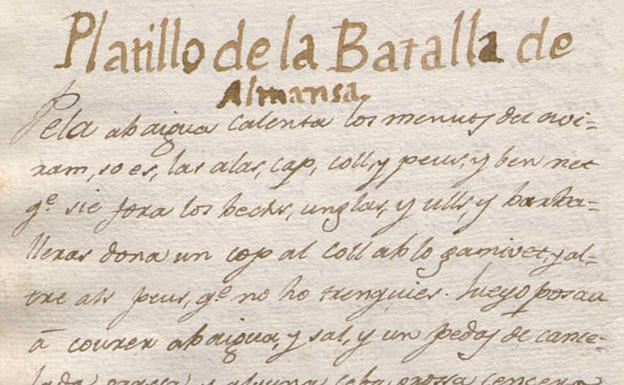 Platillo de la Batalla de
Almansa.
Pela abaigua calenta los menuts del avi=
ram, so es, las alas, cap, coll, y peus, y ben net
qe. sie fora los bechs, unglas, y ulls, y barba=
lleras dona un cop al coll ab lo ganivet, y al=
tre als peus, qe. no ho trenquies. Lueyo posau
â courer abaigua, y sal, y un pedas de canca=
lada grassa y alguna ceba grossa sencera